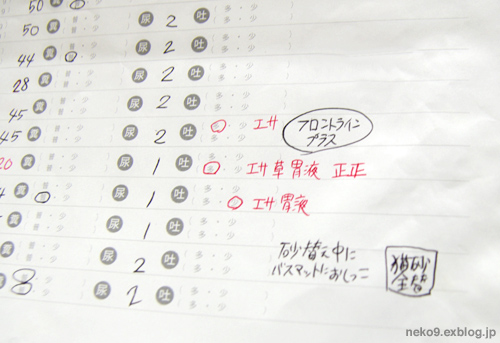 50 糞 普・少 尿 2 吐 多・少
50 糞 普・少 尿 2 吐 多・少
44 糞 普・少 尿 2 吐 多・少
28 糞 普・少 尿 2 吐 多・少
45 糞 普・少 尿 2 吐 多・少
45 糞 普・少 尿 2 吐 多・少 エサ フロントライン
プラス
20 糞 普・少 尿 1 吐 多・少 エサ 草 胃液 正正
糞 普・少 尿 1 吐 多・少 エサ 胃液
糞 普・少 尿 1 吐 多・少
糞 普・少 尿 2 吐 多・少 砂替え中に
バスマットにおしっこ
猫砂
全替
糞 8 普・少 尿 2 吐 多・少
neko9.exblog.jp